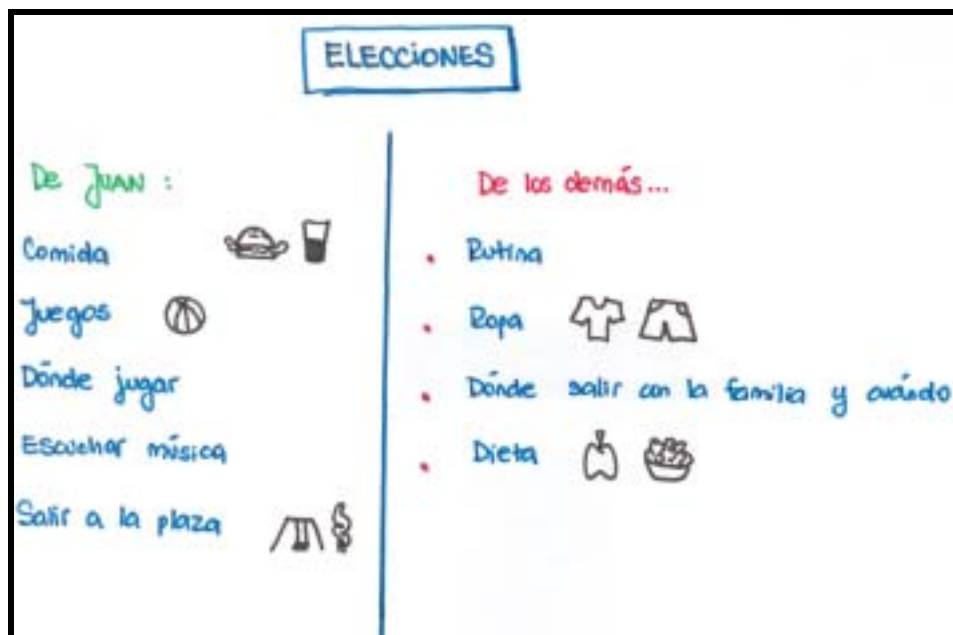 ELECCIONES
De JUAN :
Comida
Juegos
Dónde jugar
Escuchar música
Salir a la plaza
De los demás...
• Rutina
• Ropa
• Dónde salir con la familia y cuándo
• Dieta